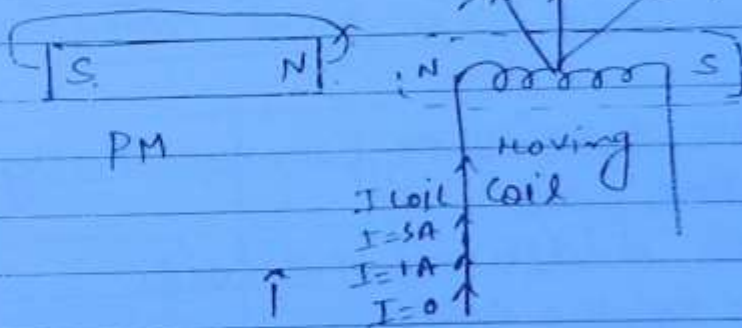 S. N N S
PM
Moving
I coil coil
I=5A
I=1A
I=0